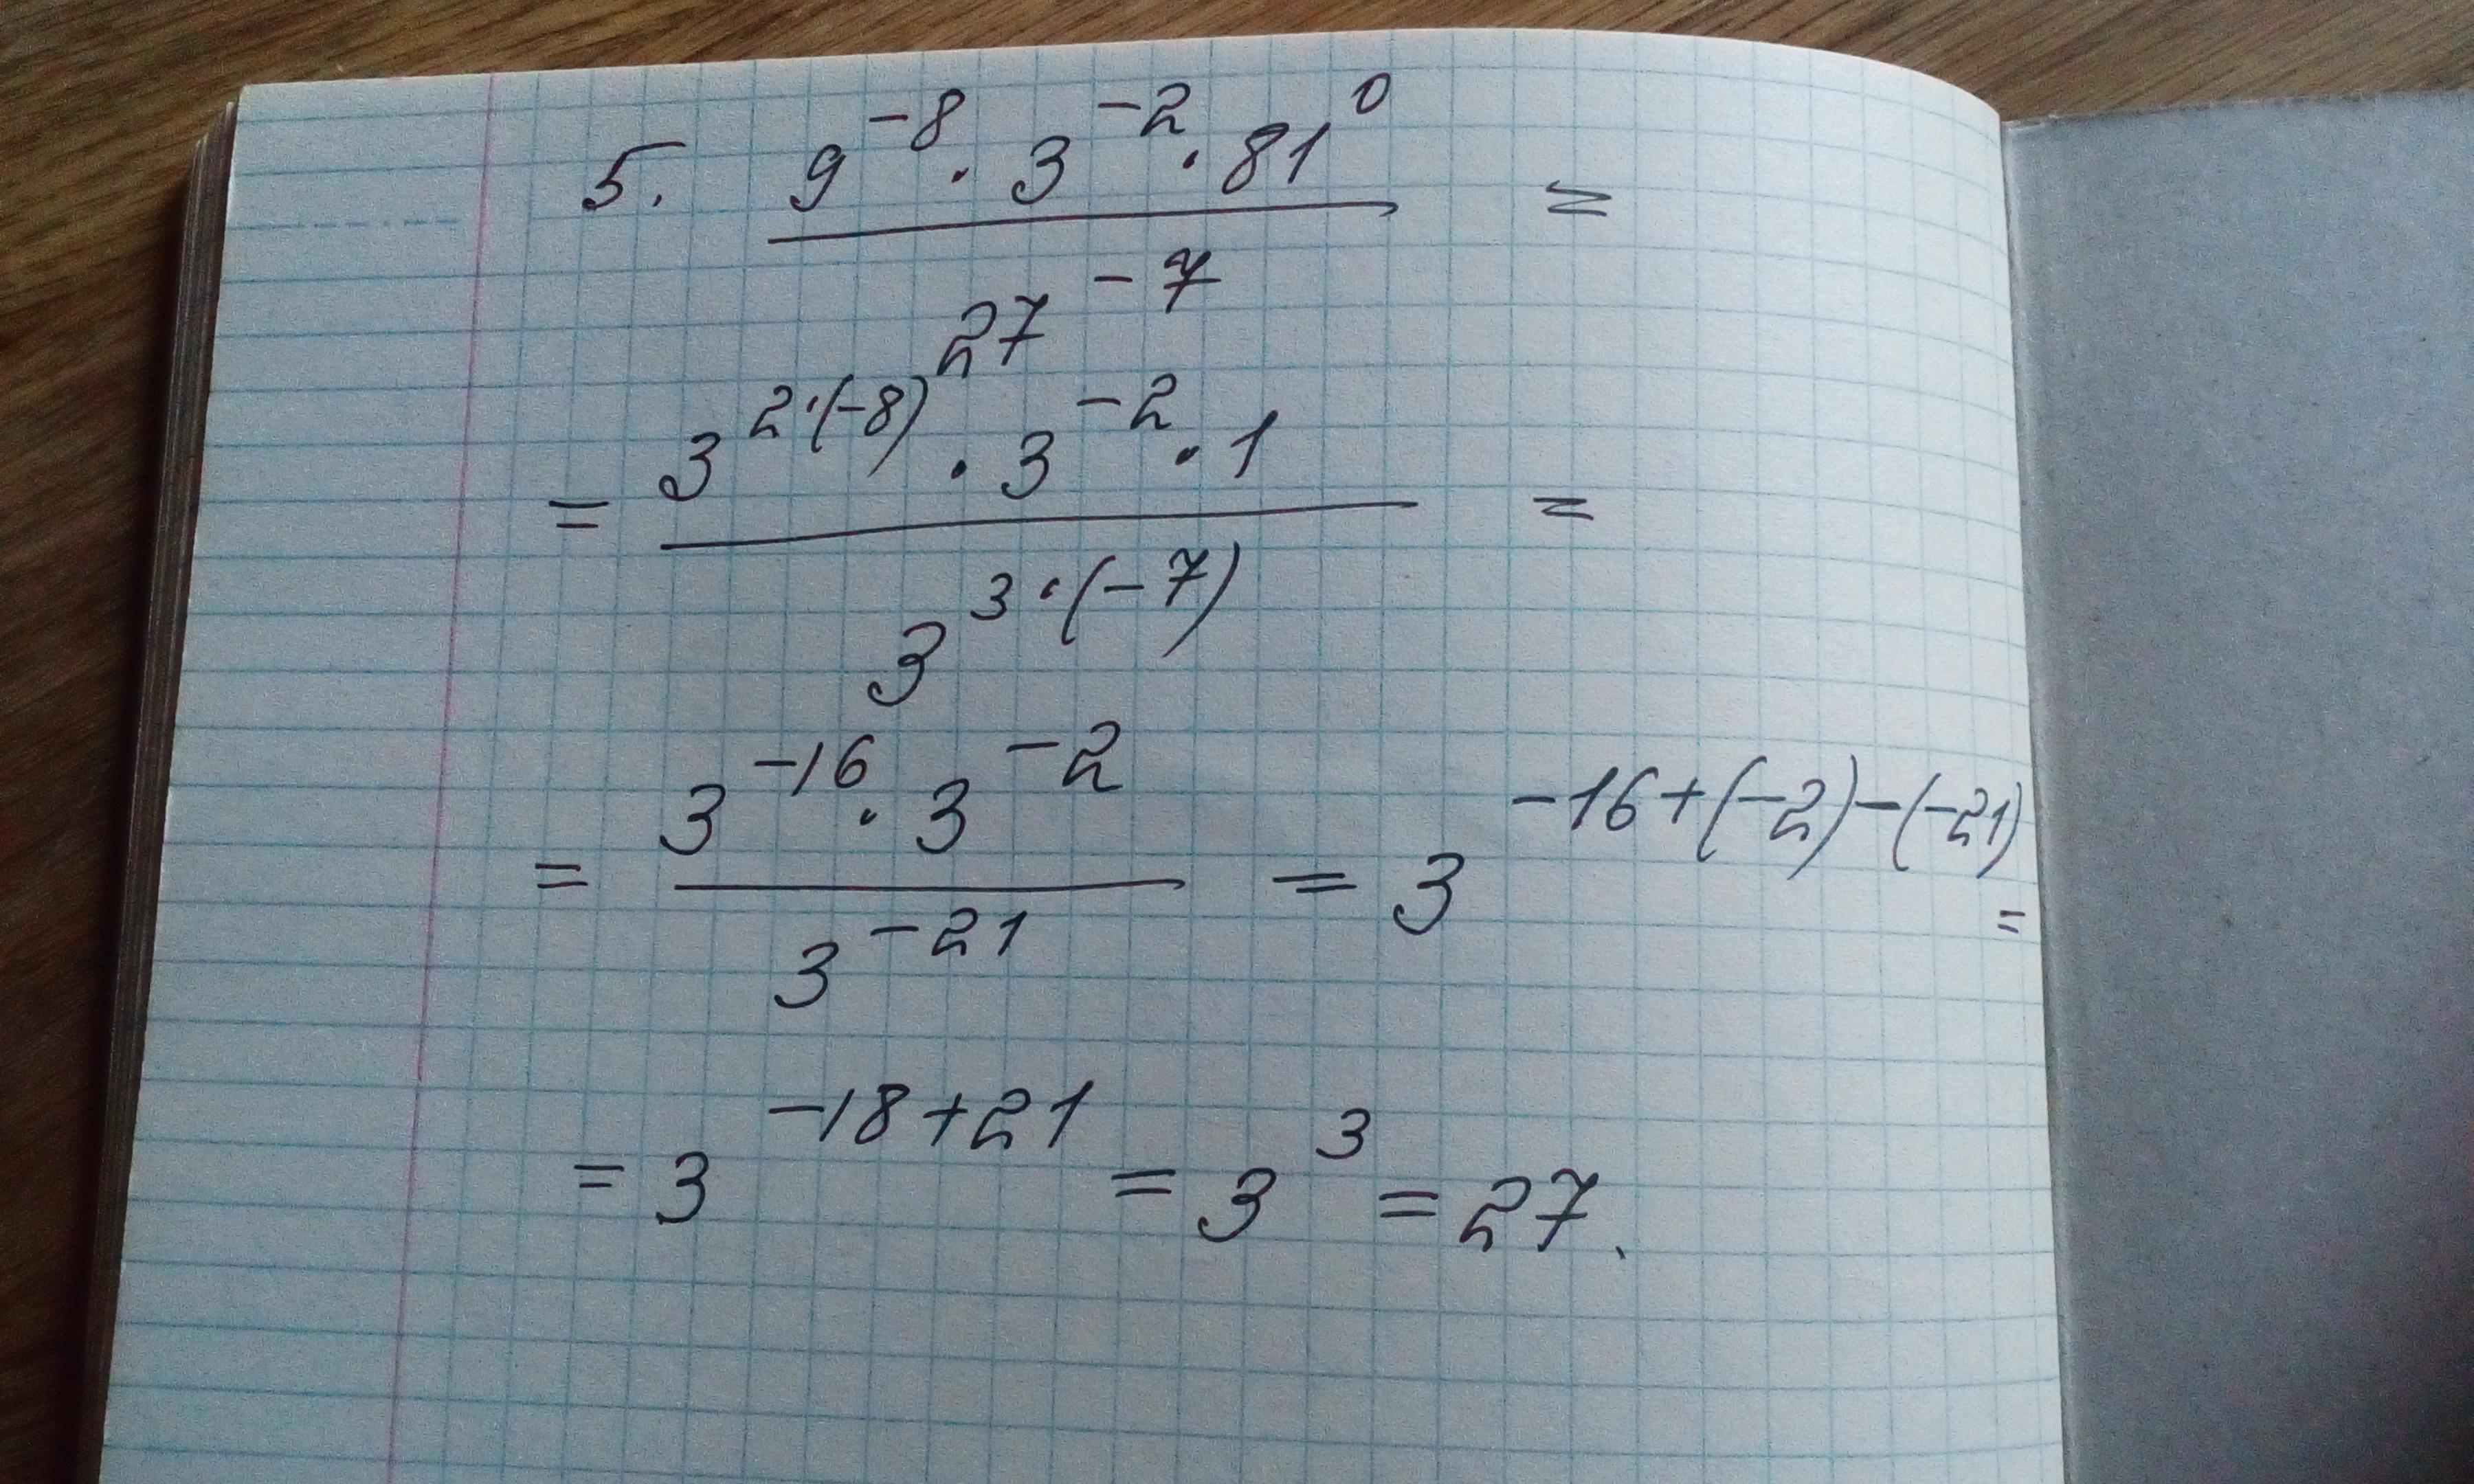 5. \frac{9^{-8} \cdot 3^{-2} \cdot 81^{0}}{27^{-7}} =
= \frac{3^{2 \cdot (-8)} \cdot 3^{-2} \cdot 1}{3^{3 \cdot (-7)}} =
= \frac{3^{-16} \cdot 3^{-2}}{3^{-21}} = 3^{-16+(-2)-(-21)} =
= 3^{-18+21} = 3^{3} = 27.